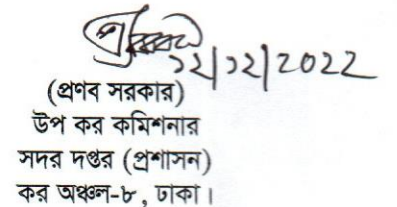 ১২/১২/2022
(প্রণব সরকার)
উপ কর কমিশনার
সদর দপ্তর (প্রশাসন)
কর অঞ্চল-৮, ঢাকা।